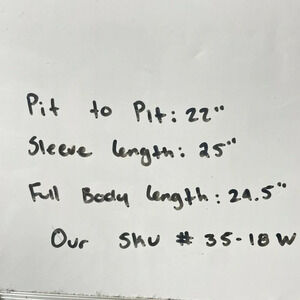 Pit to Pit: 22"
Sleeve length: 25"
Full Body length: 24.5"
Our Sku # 35-18 W